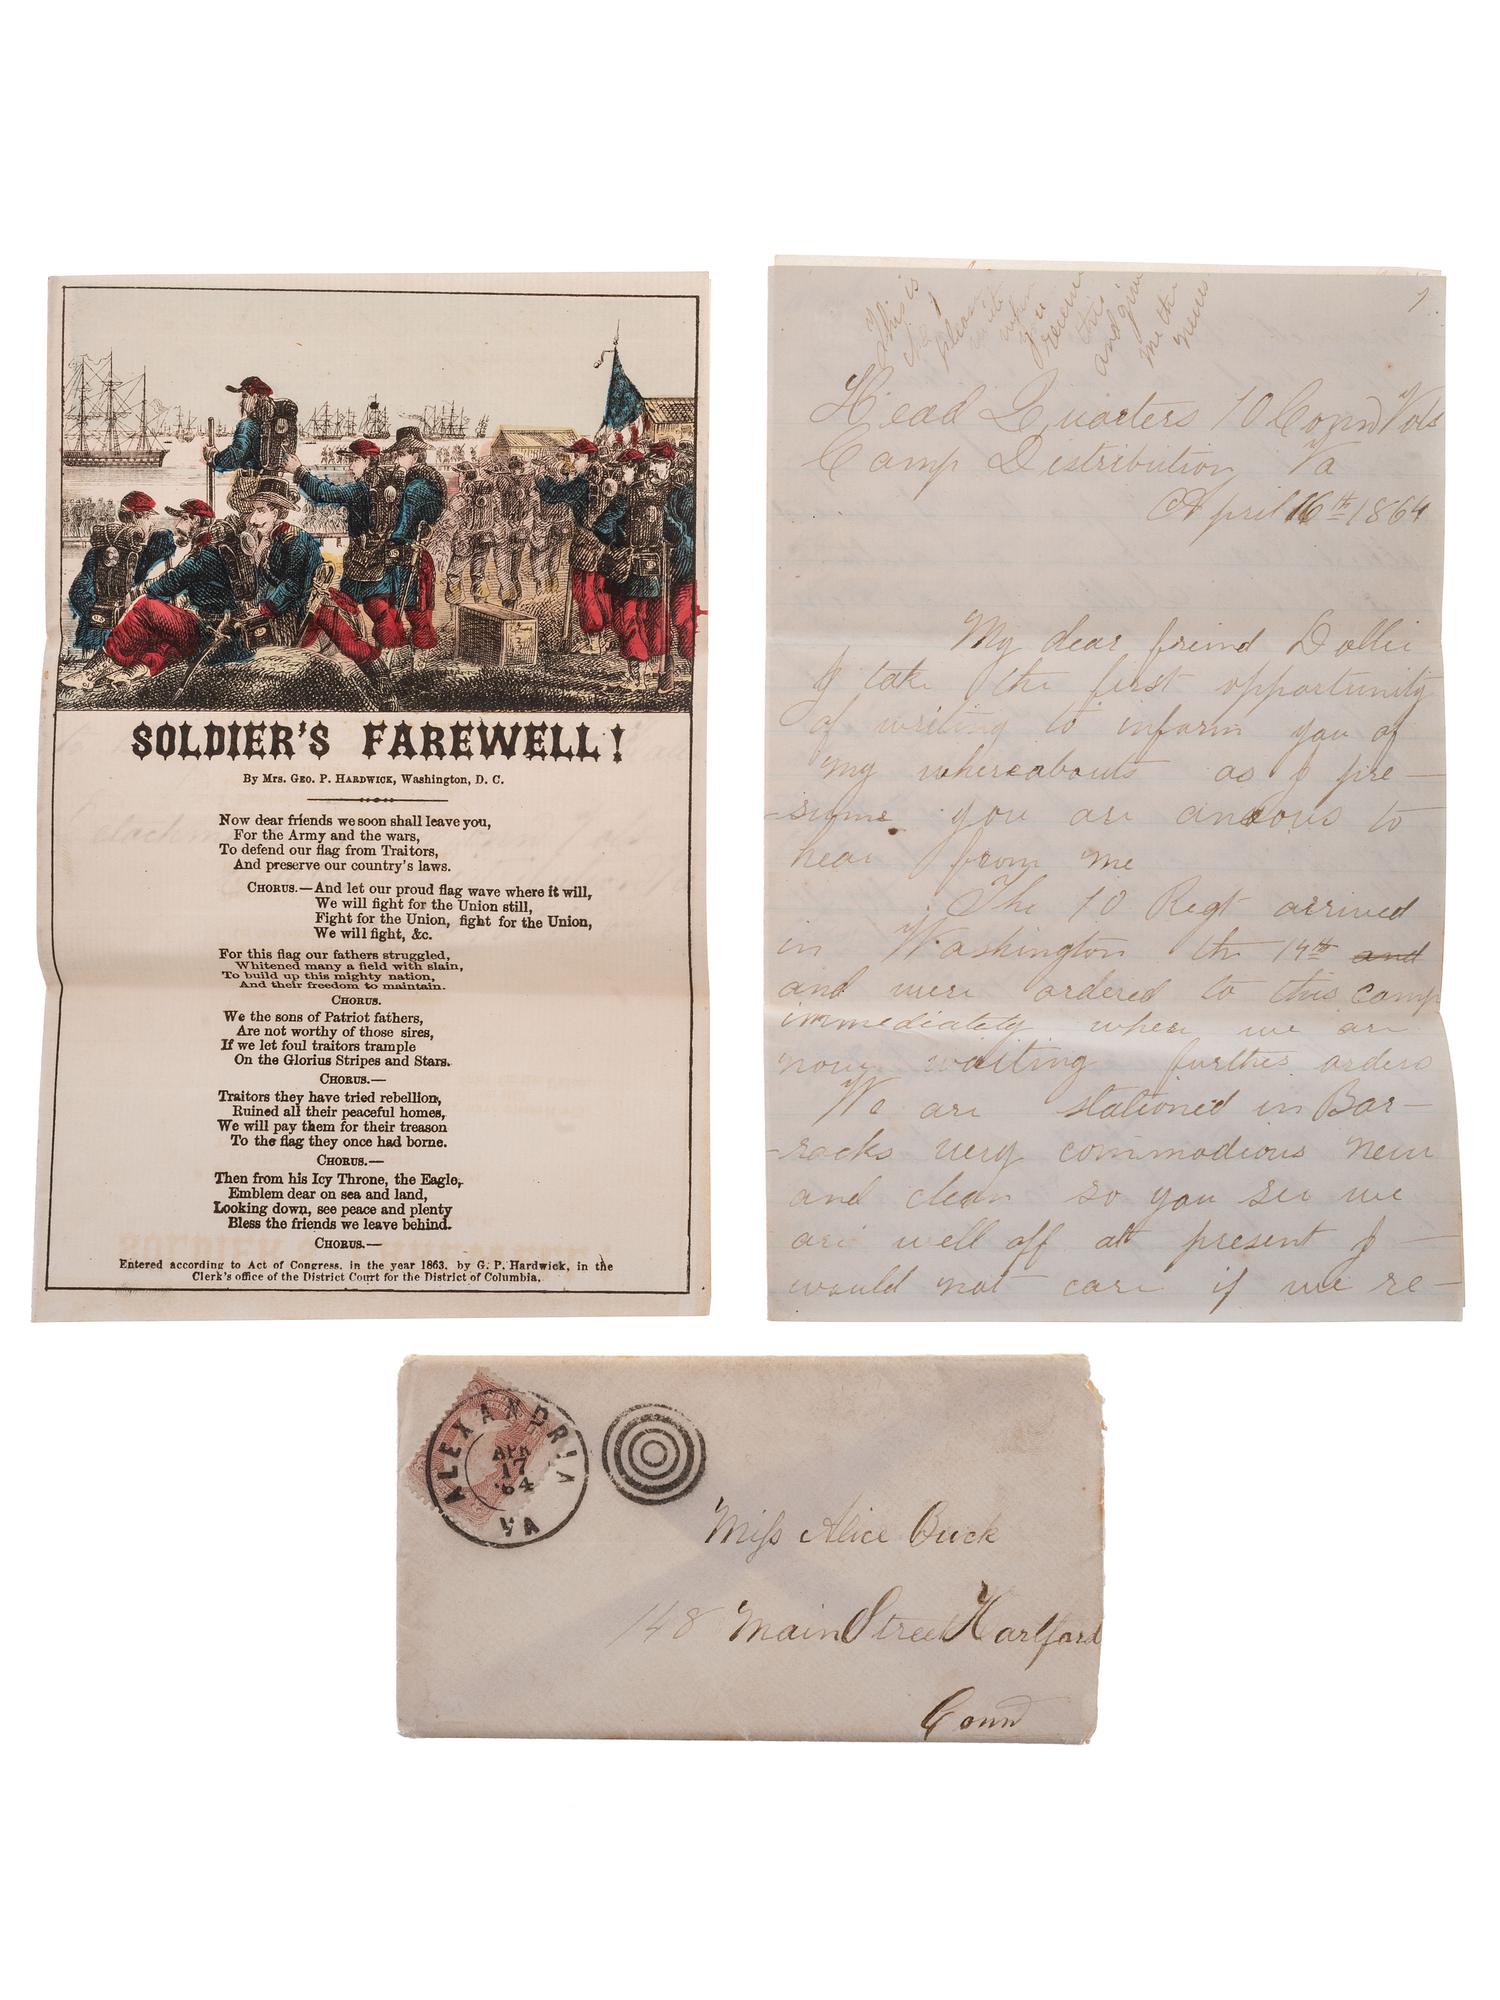 SOLDIER'S FAREWELL!
By Mrs. Geo. P. Hardwick, Washington, D. C.
Now dear friends we soon shall leave you,
For the Army and the wars,
To defend our flag from Traitors,
And preserve our country's laws.
Chorus.—And let our proud flag wave where it will,
We will fight for the Union still,
Fight for the Union, fight for the Union,
We will fight, &c.
For this flag our fathers struggled,
Whitened many a field with slain,
To build up this mighty nation,
And their freedom to maintain.
Chorus.
We the sons of Patriot fathers,
Are not worthy of those sires,
If we let foul traitors trample
On the Glorius Stripes and Stars.
Chorus.—
Traitors they have tried rebellion,
Ruined all their peaceful homes,
We will pay them for their treason
To the flag they once had borne.
Chorus.—
Then from his Icy Throne, the Eagle,
Emblem dear on sea and land,
Looking down, see peace and plenty
Bless the friends we leave behind.
Chorus.—
Entered according to Act of Congress, in the year 1863, by G. P. Hardwick, in the
Clerk's office of the District Court for the District of Columbia.
This is
please
write
when
you
receive
this
and give
me the
news
Head Quarters 10 Conn Vols
Camp Distribution Va
April 16th 1864
My dear freind Dollie
I take the first opportunity
of writing to inform you of
my whereabouts as I pre—
-sume you are anxous to
hear from me
The 10 Regt arrived
in Washington the 14th and
and were ordered to this camp
immediately where we are
now waiting further orders
We are stationed in Bar—
-racks very commodious new
and clean so you see we
are well off at present I —
would not care if we re—
ALEXANDRIA
APR
17
'64
VA
Miss Alice Buck
148 Main Street Hartford
Conn